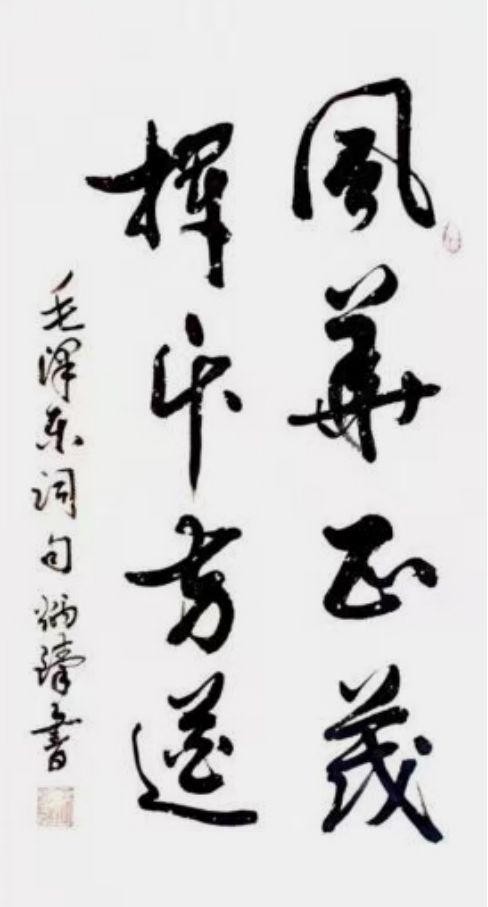 風華正茂
揮斥方遒
毛澤东词句炳書